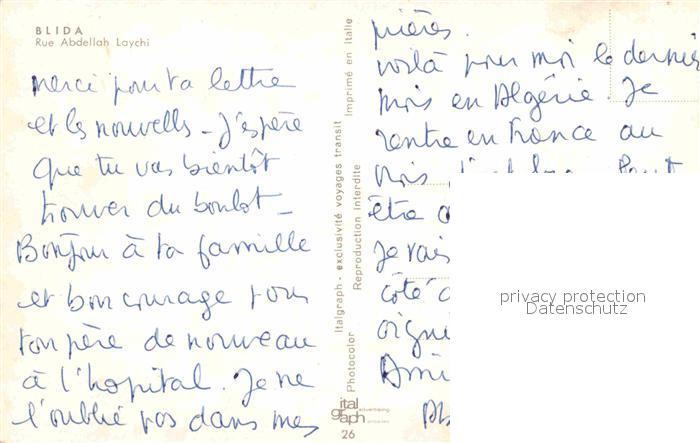 BLIDA
Rue Abdellah Laychi
merci pour ta lettre
et les nouvelles - J'espère
que tu vas bientôt
trouver du boulot -
Bonjour à ta famille
et bon courage pour
ton père de nouveau
à l'hopital. Je ne
l'oublie pas dans mes
Photocolor
Italgraph - exclusivité voyages transit
Reproduction interdite
Imprimé en Italie
ital
graph advertising
26
prières.
voilà pour moi le dernier
mois en Algérie. Je
rentre en France au
mois
être
je vais
côté
Ami
privacy protection
Datenschutz